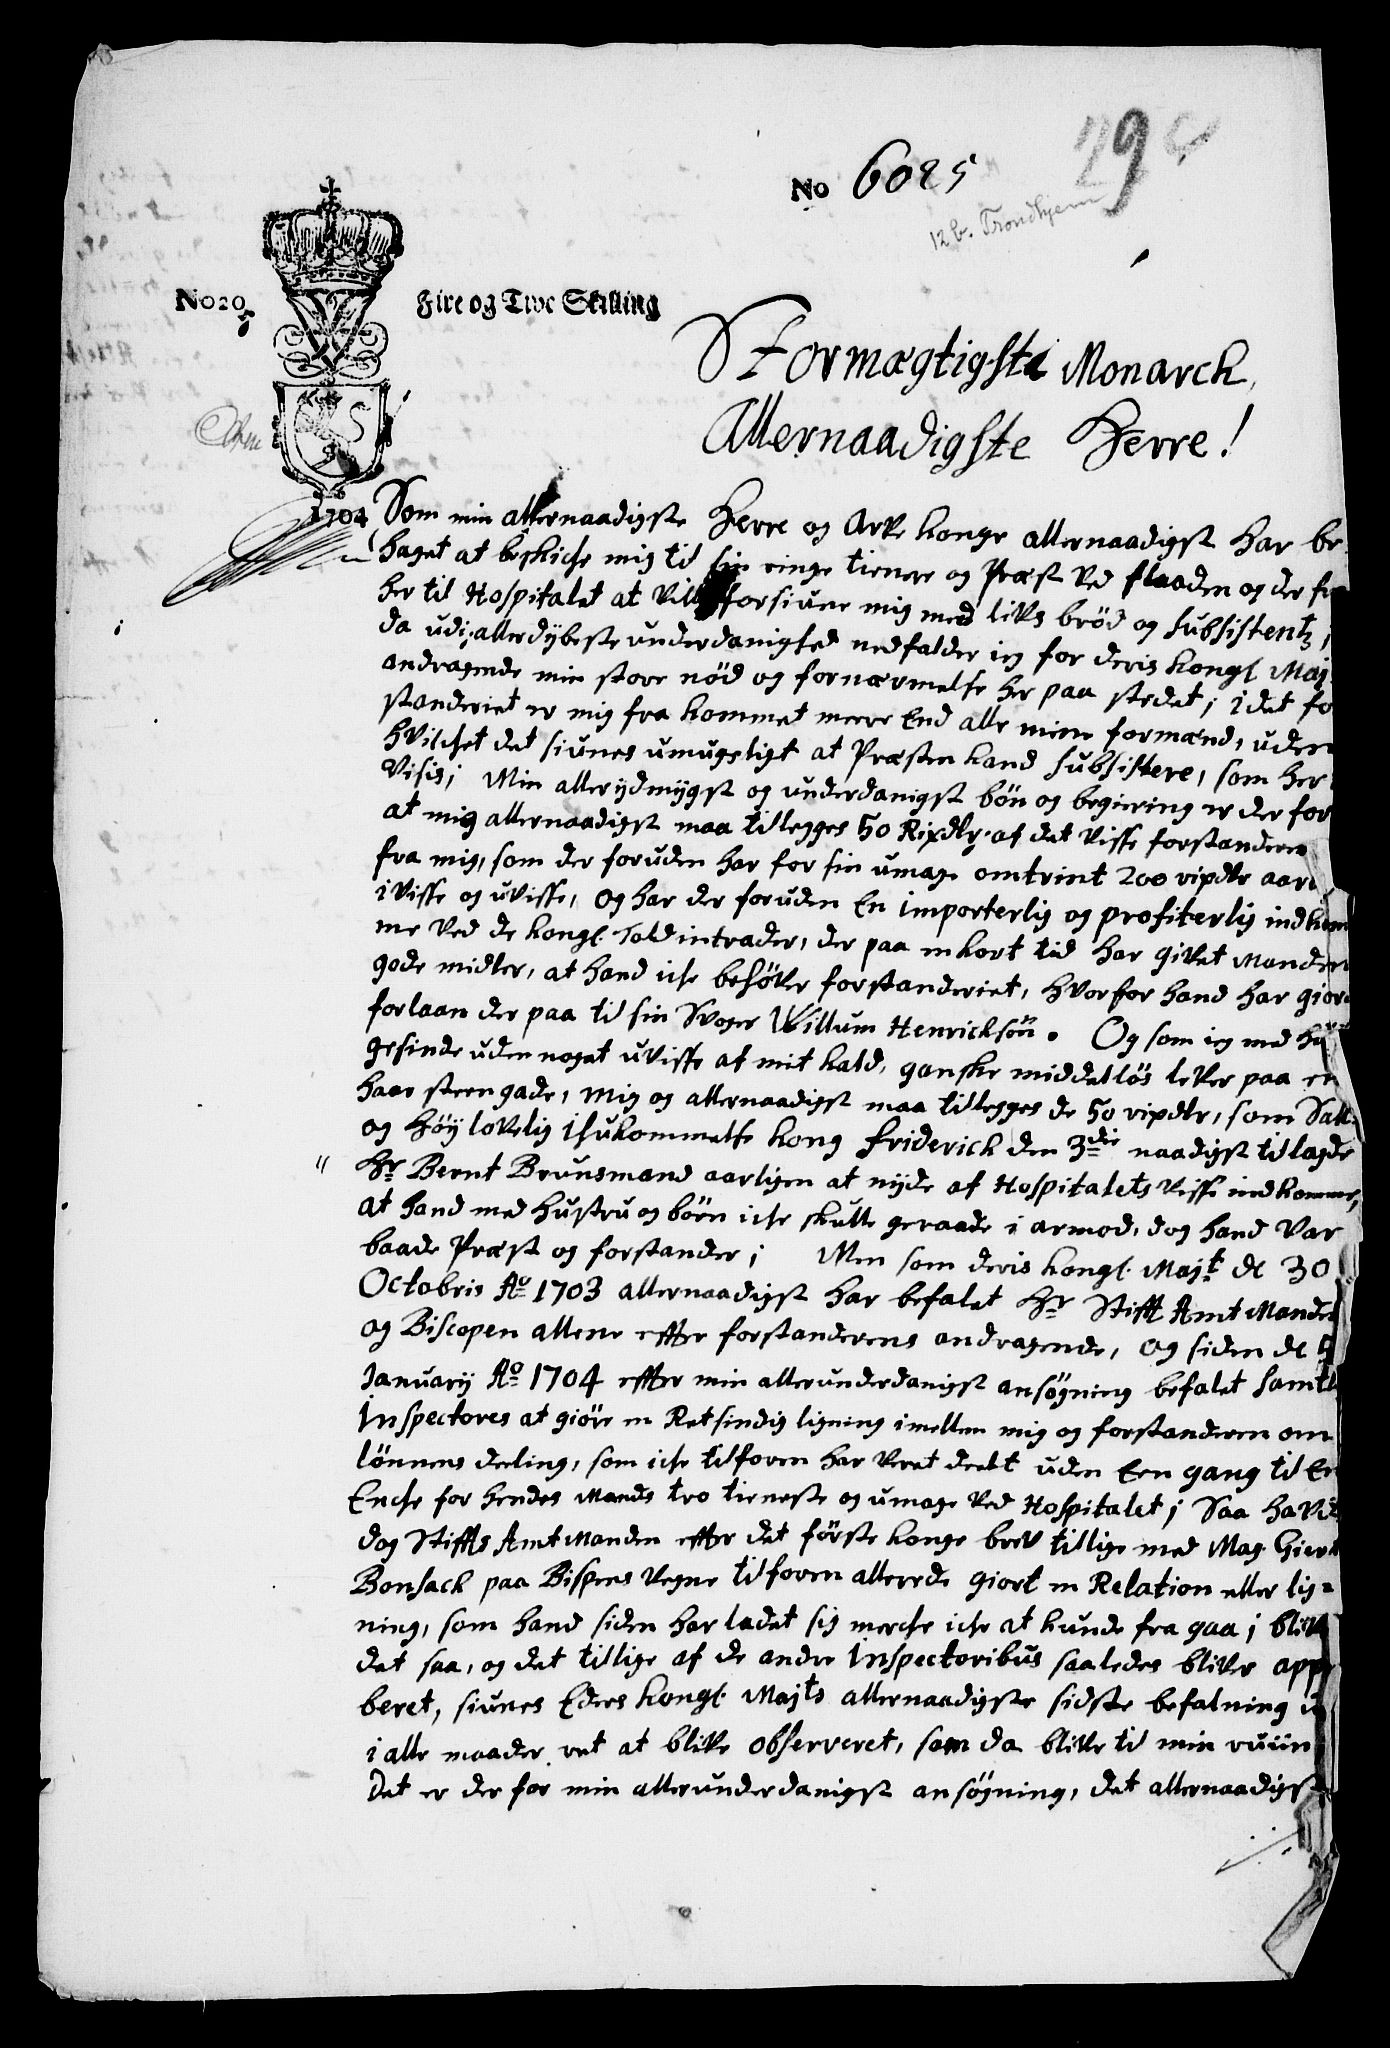 No 6025
29
12 b. Trondhjem
No 20
5
Fire og Tive Skilling
1704
STormægtigste Monarck,
Allernaadigste Herre!
Som min allernaadigste Herre og Arve konge allernaadigst har be-
haget at beskicke mig til sin ringe tienere og Præst ved flaaden og der
her til Hospitalet at ville forsiune mig med livs brød og subsistentz,
da udi allerdybeste underdanighed nedfalder ieg for deris kongl Maj
andragende min store nød og fornærmelse her paa stedet; i det fo
standeriet er mig fra kommet meere End alle mine formænd, uden
hvilchet det siunes umugeligt at Præsten kand subsistere, som her
visis; Min allerydmygst og underdanigst bøn og begiering er der for
at mig allernaadigst maa tillegges 50 Rixdlr. af det visse forstanderen
fra mig, som der foruden har for sin umage omtrint 200 rixdlr aarl
i visse og uvisse, og har der foruden En importerlig og profiterlig indkom
me ved de kongl. Told intrader, der paa en kort tid har givet Manden
gode midler, at hand iche behøver forstanderiet, hvorfor hand har giort
forlaan der paa til sin Svoger Willum Henrichsøn. Og som ieg med hu
gesinde uden noget uvisse af mit kald, ganske middelløs lever paa en
haar steengade, mig og allernaadigst maa tillegges de 50 rixdlr, som Sall.
og Høylovelig ihukommelse kong Friderich den 3die naadigst tillagde
" Hr Bernt Brunsmand aarligen at nyde af Hospitalets visse indkomme,
at hand med hustru og børn iche skulle geraade i armod, dog hand var
baade Præst og forstander; Men som deris kongl. Majt de 30
Octobris Ao 1703 allernaadigst har befalet Hr Stifft Amt Manden
og Biscopen allene effter forstanderens andragende, og siden de 5
Januarij Ao 1704 effter min allerunderdanigst ansøgning befalet samtl
Inspectores at giøre en Retsindig ligning imellem mig og forstanderen om
lønnens deeling, som iche tilforn har veret deelt uden Een gang til En
Enche for hendes Mands tro tieneste og umage ved Hospitalet; Saa haver
dog Stiffts Amt Manden effter det første konge brev tillige med Mag Giert
Bonsack paa Bispens vegne tilforn allerede giort en Relation eller lig-
ning, som hand siden har ladet sig merche iche at kunde fra gaa; bliver
det saa, og det tillige af de andre Inspectoribus saaledes bliver app
beret, siunes Eders kongl. Majts allernaadigste sidste befalning
i alle maader ret at blive observeret, som da blive til min ruin
Det er der for min allerunderdanigst ansøgning, det allernaadigst